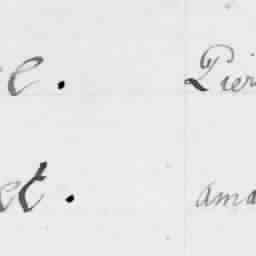 e. Pier
et. ama